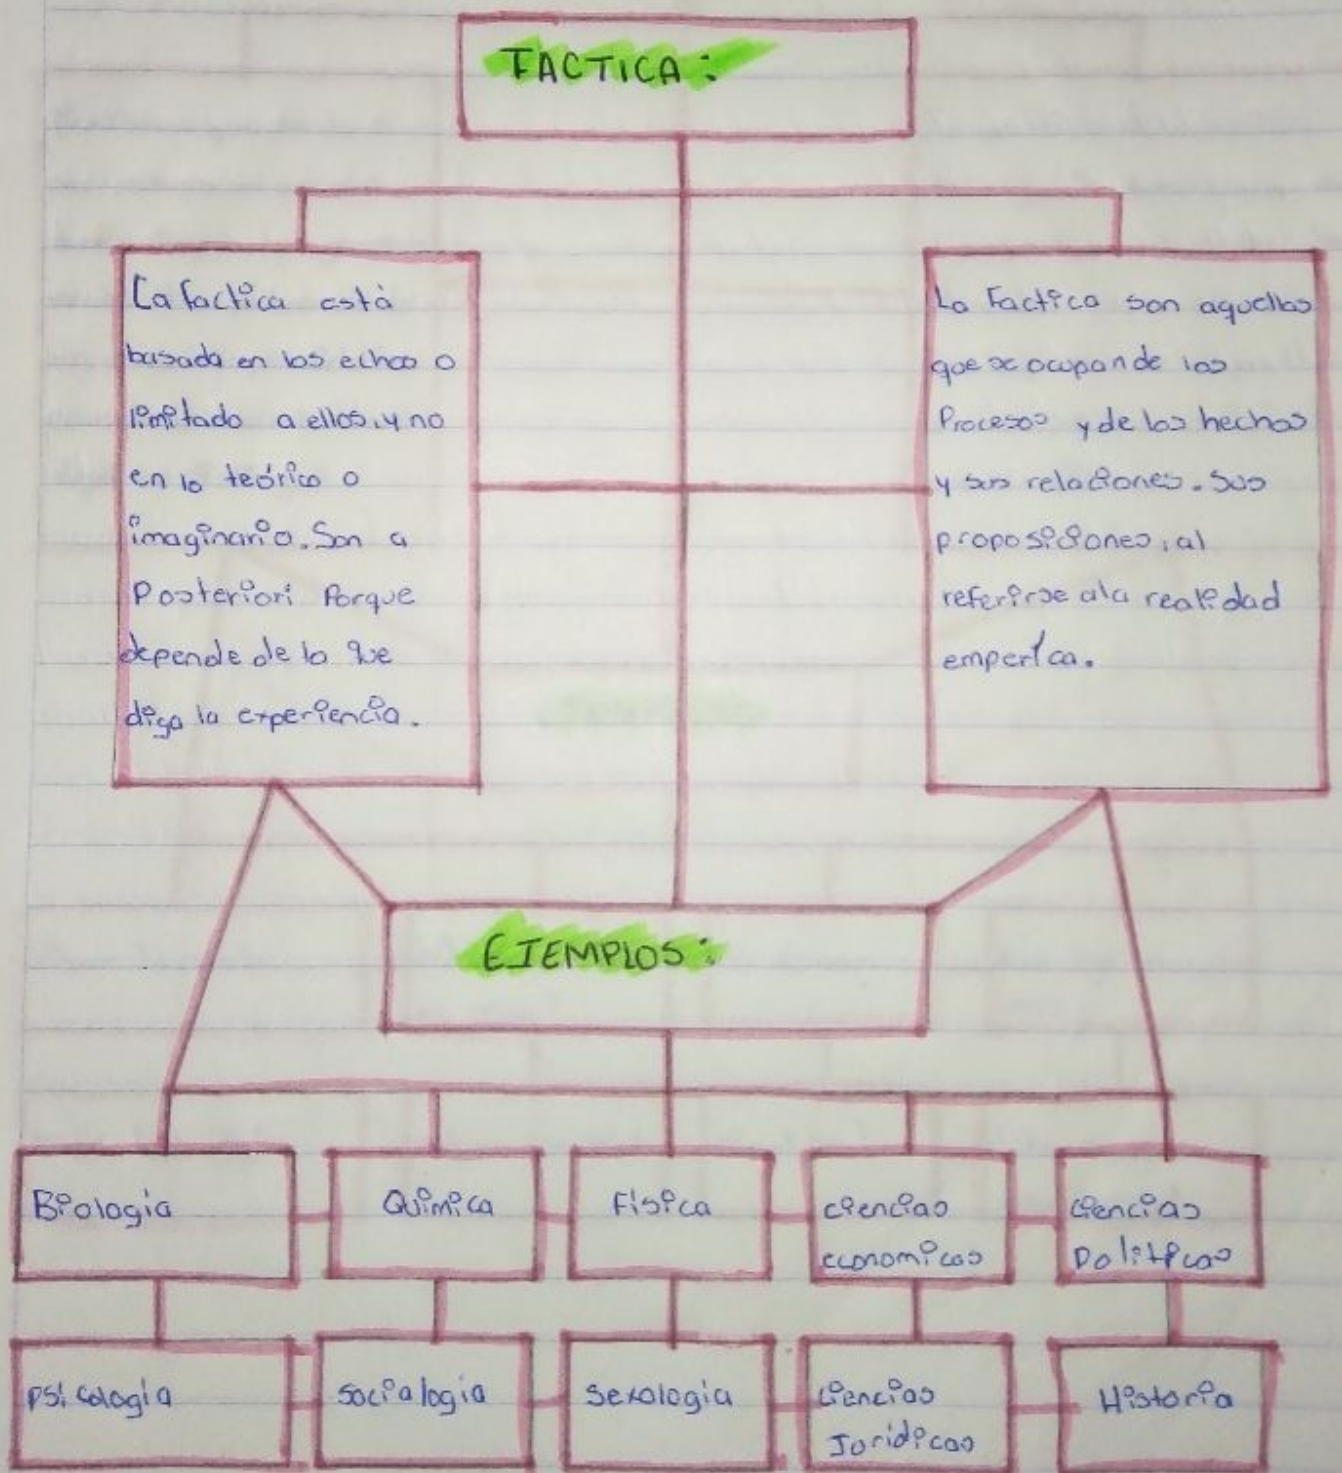 FACTICA:
La factica está
basada en los echos o
limitado a ellos, y no
en lo teórico o
imaginario. Son a
Posteriori Porque
depende de lo que
diga la experiencia.
La Factica son aquellas
que se ocupan de los
Procesos y de los hechos
y sus relaciones. Sus
proposiciones, al
referirse ala realidad
emperíca.
EJEMPLOS:
Biologia
Química
Física
ciencias
economicas
Ciencias
Politicas
Psicologia
Socialogia
Sexologia
Ciencias
Juridicas
Historia